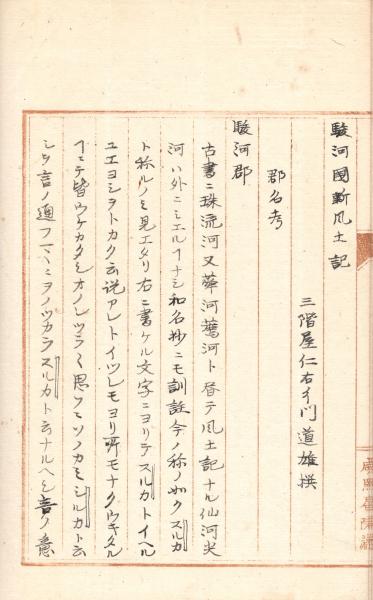 駿河國新風土記
三階屋仁右衛門道雄撰
郡名考
駿河郡
古書ニ珠流河又薙河薦河ト昏テ風土記ナル仙河尖
河ハ外ニミエルヿナシ和名抄ニモ訓註今ノ称ノ如クスルカ
ト称ルノミ見エタリ右ニ書ケル文字ニヨリテスルカトイヘル
ユエヨシヲトカク云説アレトイツレモヨリ所モナクウキタル
ヿニテ皆ウケカタシオノレツラ〱思フニソノカミシルカト云
シヲ言ノ通フマヽニヲノツカラスルカト云ナルヘシ言ノ意